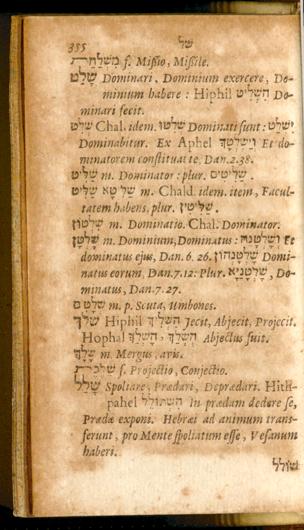 355 של
מִשְׁלַחַת f. Missio, Missile.
שָׁלַט Dominari, Dominium exercere, Do-
minium habere : Hiphil הִשְׁלִיט Do-
minari fecit.
שְׁלֵט Chal. idem. שְׁלִטוּ Dominati sunt : יִשְׁלַט
Dominabitur. Ex Aphel וְהַשְׁלְטָךְ Et do-
minatorem constituat te, Dan. 2.38.
שַׁלִּיט m. Dominator : plur. שַׁלִּיטִים.
שַׁלִּיט שַׁלִּיטָא m. Chald. idem. item, Facul-
tatem habens, plur. שַׁלִּיטִין.
שִׁלְטוֹן m. Dominatio. Chal. Dominator.
שָׁלְטָן m. Dominium, Dominatus : וְשָׁלְטָנֵהּ Et
dominatus ejus, Dan. 6. 26. שָׁלְטָנְהוֹן Domi-
natus eorum, Dan. 7.12: Plur. שָׁלְטָנַיָּא, Do-
minatus, Dan. 7.27.
שְׁלָטִים m. p. Scuta, Umbones.
שָׁלַךְ Hiphil הִשְׁלִיךְ Jecit, Abjecit, Projecit.
Hophal הָשְׁלַךְ, הֻשְׁלַךְ Abjectus fuit.
שָׁלָךְ m. Mergus, aris.
שַׁלֶּכֶת f. Projectio, Conjectio.
שָׁלַל Spoliare, Prædari, Deprædari. Hith-
pahel הִשְׁתּוֹלֵל In prædam dedere se,
Prædæ exponi. Hebræi ad animum trans-
ferunt, pro Mente spoliatum esse, Vesanum
haberi.
שׁוֹלָל